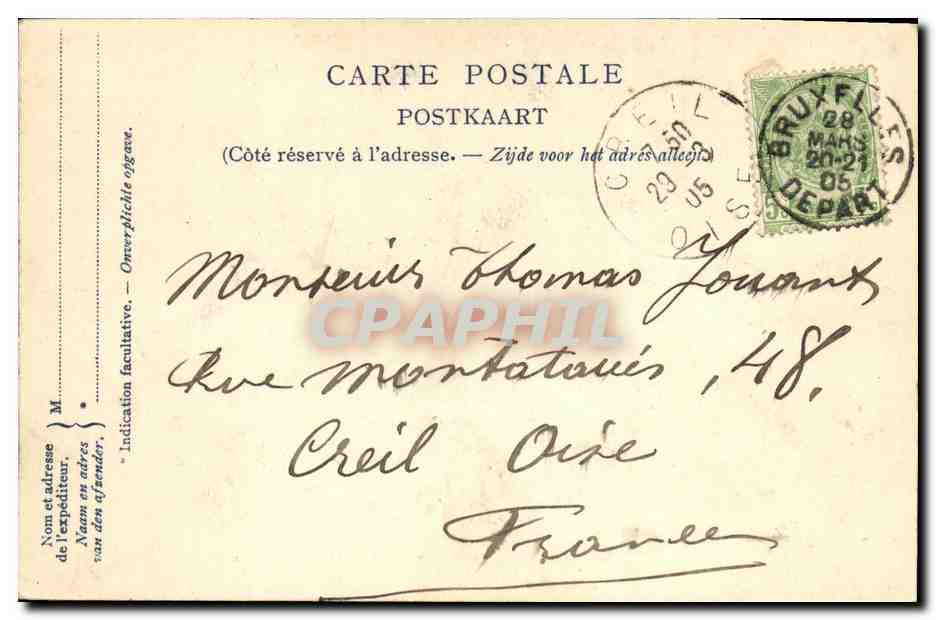 CARTE POSTALE
POSTKAART
(Côté réservé à l'adresse. — Zijde voor het adres alleen.)
CREIL
7 50
29 3
05
OISE
BRUXELLES
28
MARS
20-21
05
DEPART
5
Monsieur Thomas Jouant
Rue Montataire, 48,
Creil Oise
France
CPAPHIL
Nom et adresse
de l'expéditeur.
Naam en adres
van den afzender.
M
*
* Indication facultative. — Onverplichte opgave.